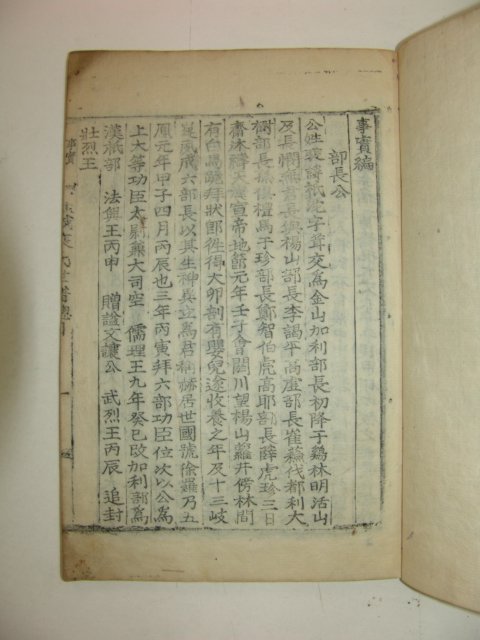 事實編
部長公
公姓裵諱祗沱字聳交爲金山加利部長初降于鷄林明活山
及長惆 與楊山部長李謁平高墟部長崔蘓伐都利大
樹部長 俱禮馬于珍部長鄭智伯虎高耶 長薛虎珍三日
齋沐禱天漢宣帝地節元年壬子會閼川望楊山蘿井傍林間
有白馬 拜狀卽徃得大卵剖有嬰兒遂收養之年及十三岐
嶷夙成六部長以其生神異立爲君稱赫居世國號徐羅乃五
鳳元年甲子四月丙辰也三年丙寅拜六部功臣位次以公爲
上大等功臣太尉兼大司空 儒理王九年癸巳改加利部爲
漢祇部 法興王丙申 贈諡文讓公 武烈王丙辰 追封
壯烈王
事實